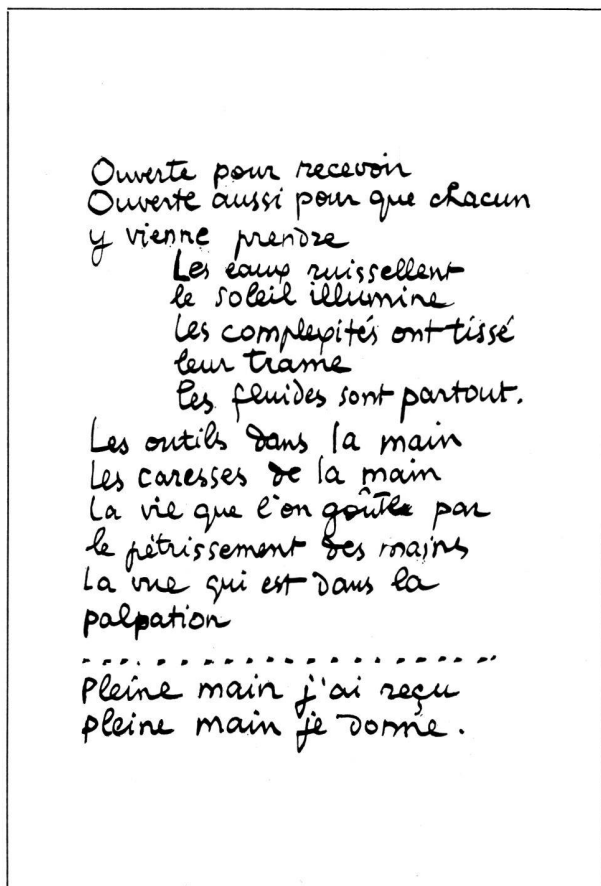 Ouverte pour recevoir
Ouverte aussi pour que chacun
y vienne prendre
Les eaux ruissellent
le soleil illumine
Les complexités ont tissé
leur trame
les fluides sont partout.
Les outils dans la main
Les caresses de la main
La vie que l'on goûte par
le pétrissement des mains
La vue qui est dans la
palpation
. . . . . . . . . . . . . . . . . . . .
Pleine main j'ai reçu
pleine main je donne.